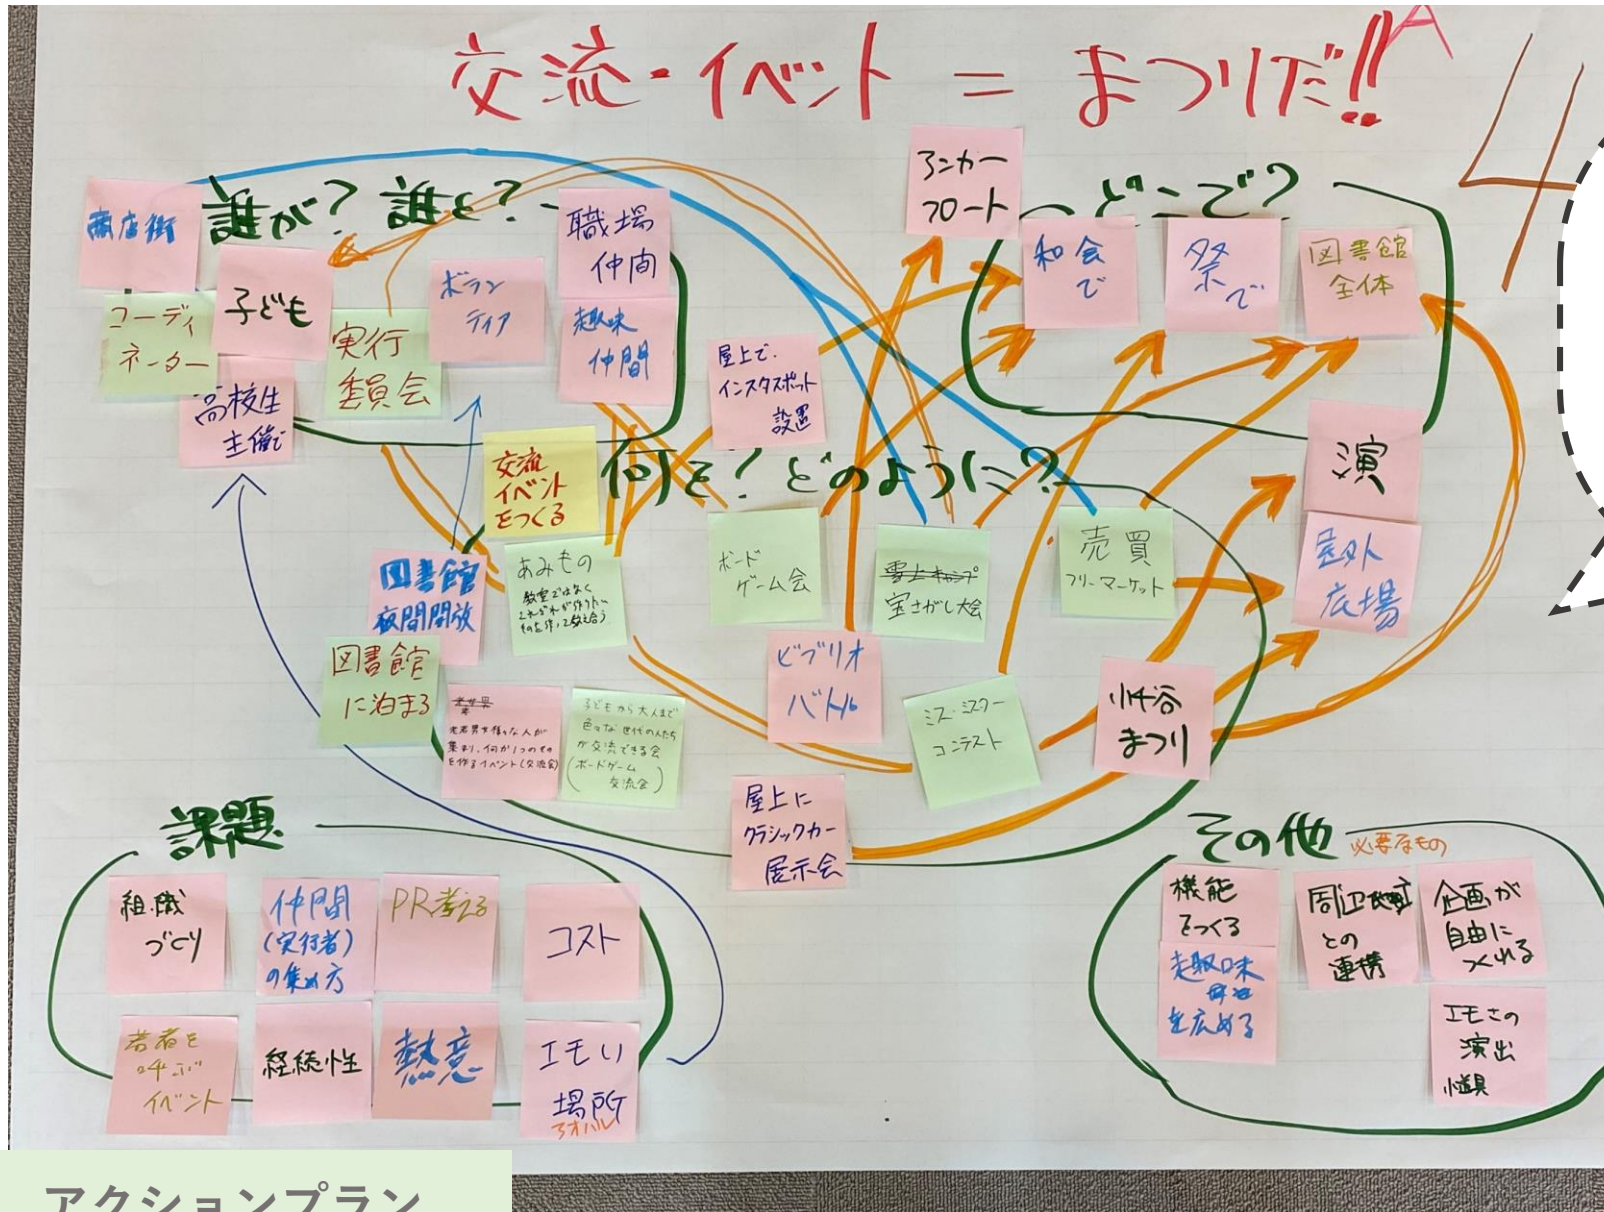 交流・イベント = まつりだ!!
A
4
誰が? 誰と?
商店街
コーディ
ネーター
子ども
高校生
主催で
実行
委員会
ボラン
ティア
職場
仲間
趣味
仲間
アンカー
フロート
どこで?
和会
で
祭
で
図書館
全体
演
屋外
広場
屋上で
インスタスポット
設置
交流
イベント
をつくる
何を? どのように?
図書館
夜間開放
図書館
に泊まる
あみもの
教室ではなく
それぞれが作りたい
ものを作って教え合う
ボード
ゲーム会
雪上キャンプ
宝さがし大会
売買
フリーマーケット
老若男女様々な人が
集まり、何か1つのもの
を作るイベント(交流会)
子どもから大人まで
色々な世代の人たち
が交流できる会
(ボードゲーム
交流会)
ビブリオ
バトル
ミス・ミスター
コンテスト
小千谷
まつり
屋上に
クラシックカー
展示会
課題
組織
づくり
仲間
(実行者)
の集め方
PR考える
コスト
若者を
呼ぶ
イベント
経続性
熱意
エモい
場所
アオハル
その他 必要なもの
機能
をつくる
趣味
を広める
周辺
との
連携
企画が
自由に
つくれる
エモさの
演出
小道具
アクションプラン